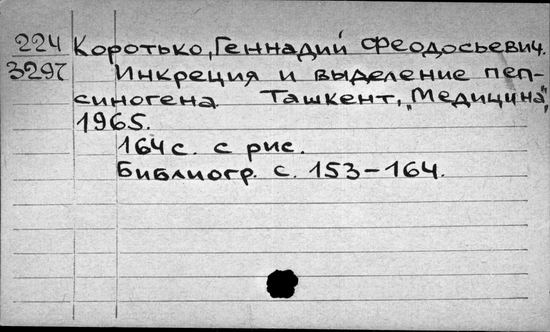 224 Коротько, Геннадий Феодосьевич.
3297 Инкреция и выделение пеп-
синогена Ташкент, „Медицина",
1965.
164 с. с рис.
Библиогр. с. 153-164.